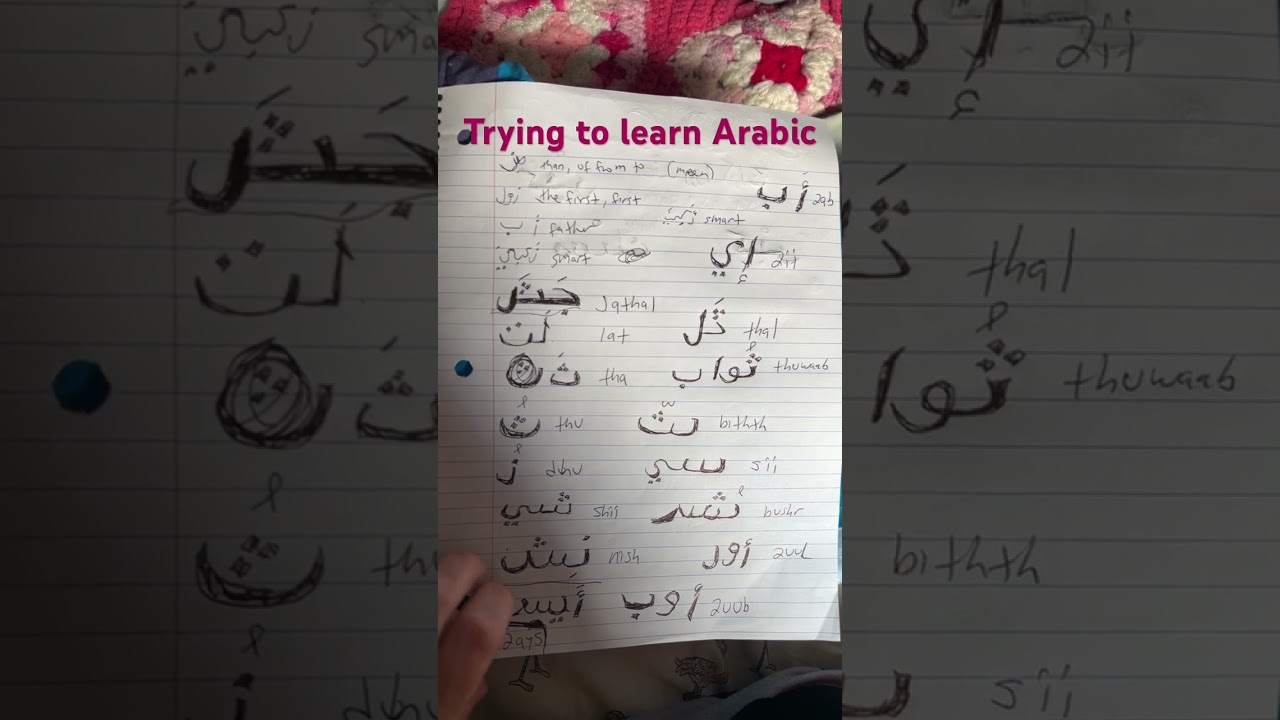 Trying to learn Arabic
than, of from to (mean)
أَب 2ab
the first, first
smart
أب father
smart
إي 2ii
جَثَل Jathal
لَت lat
ثَل thal
ثَ tha
ثُواب thuwaab
ثُ thu
بثّ bithth
ذُ dhu
سي sii
شي shii
بُشر bushr
نِش nish
أول 2uul
أَيس
أوب 2uub
2ays